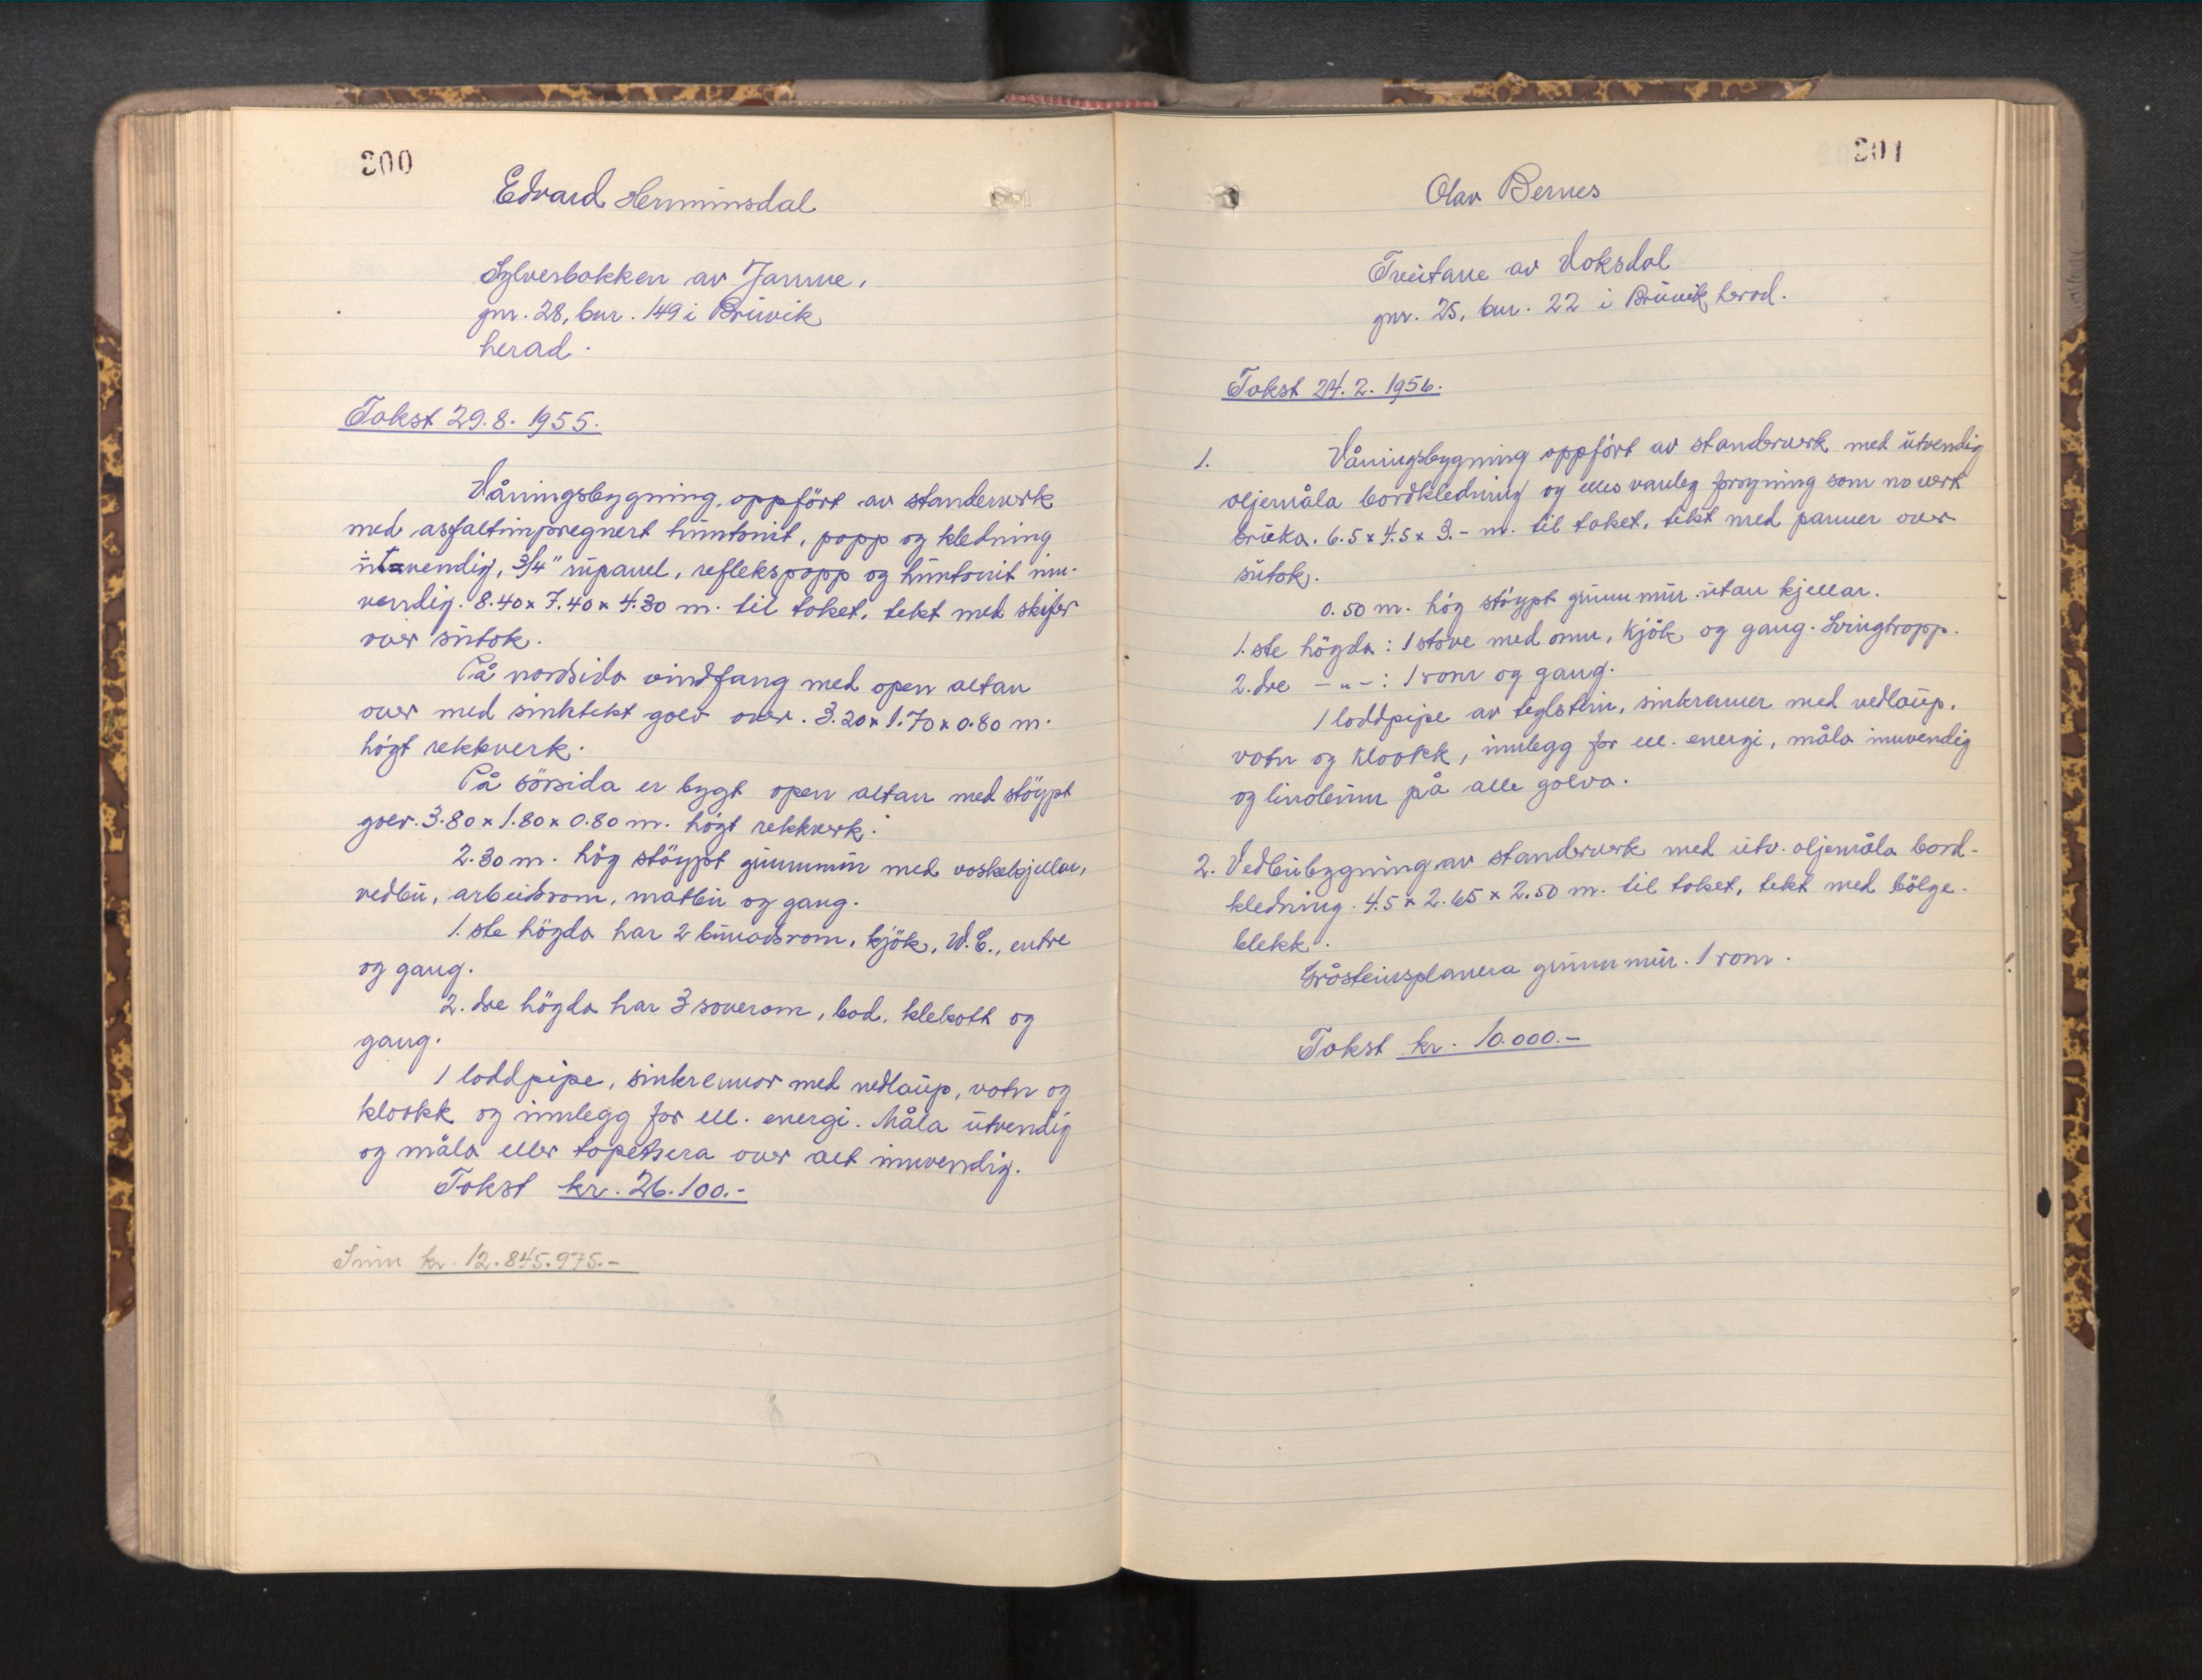 200
Edvard Hermunsdal
Sylversbakken av Jamne,
gnr. 28, bnr. 149 i Bruvik
herad.
Takst 29.8. 1955.
Våningsbygning, oppført av standerverk
med asfaltimpregnert huntonit, papp og kledning
utvendig, 3/4" inpanel, reflekspapp og huntonit inn-
vendig. 8.40 x 7.40 x 4.30 m. til taket, tekt med skifer
over sutak.
På nordsida vindfang med open altan
over med sinktekt golv over. 3.20 x 1.70 x 0.80 m.
högt rekkverk.
På sörsida er bygt open altan med stöypt
golv. 3.80 x 1.80 x 0.80 m. högt rekkverk.
2.30 m. hög stöypt grunnmur med vaskekjellar,
vedbu, arbeidsrom, matbu og gang.
1.ste högda har 2 bunadsrom, kjök, W.C., entre
og gang.
2.dre högda har 3 soverom, bad, klekott og
gang.
1 loddpipe, sinkrennor med nedlaup, vatn og
kloakk og innlegg for ell. energi. Måla utvendig
og måla eller tapetsera over alt innvendig.
Takst kr. 26.100.-
Sum kr. 12.845.975.-
201
Olav Bernes
Treitane av Vaksdal
gnr. 25, bnr. 22 i Bruvik herad.
Takst 24. 2. 1956.
1. Våningsbygning oppfört av standerverk med utvendig
oljemåla bordkledning og elles vanleg forsyning som no vert
bruka. 6.5 x 4.5 x 3.- m. til taket, tekt med panner over
sutak.
0.50 m. hög stöypt grunnmur utan kjellar.
1.ste högda : 1 stove med omn, kjök og gang. Svingtrapp.
2.dre - " - : 1 rom og gang.
1 loddpipe av teglstein, sinkrenner med nedlaup,
vatn og kloakk, innlegg for ell. energi, måla innvendig
og linoleum på alle golva.
2. Vedbubygning av standerverk med utv. oljemåla bord-
kledning. 4.5 x 2.65 x 2.50 m. til taket, tekt med bölge-
blekk.
Gråsteinsplanera grunnmur. 1 rom.
Takst kr. 10.000.-